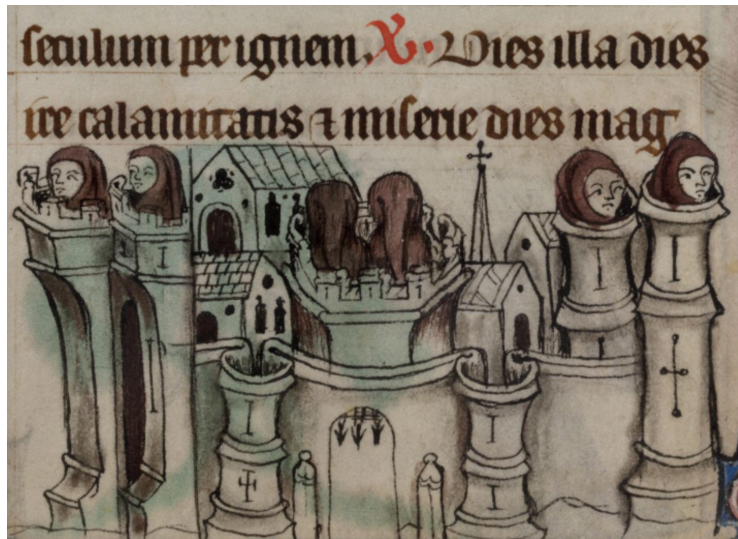 seculum per ignem. V. Dies illa dies
ire calamitatis ⁊ miserie dies mag